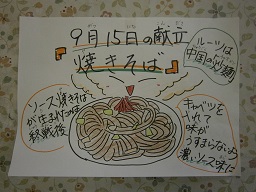 9月15日の献立
『焼きそば』
ルーツは
中国の炒麺
ソース焼きそば
が生まれたのは
終戦後
キャベツを
入れて
味が
うすまらないよう
濃いソース味に